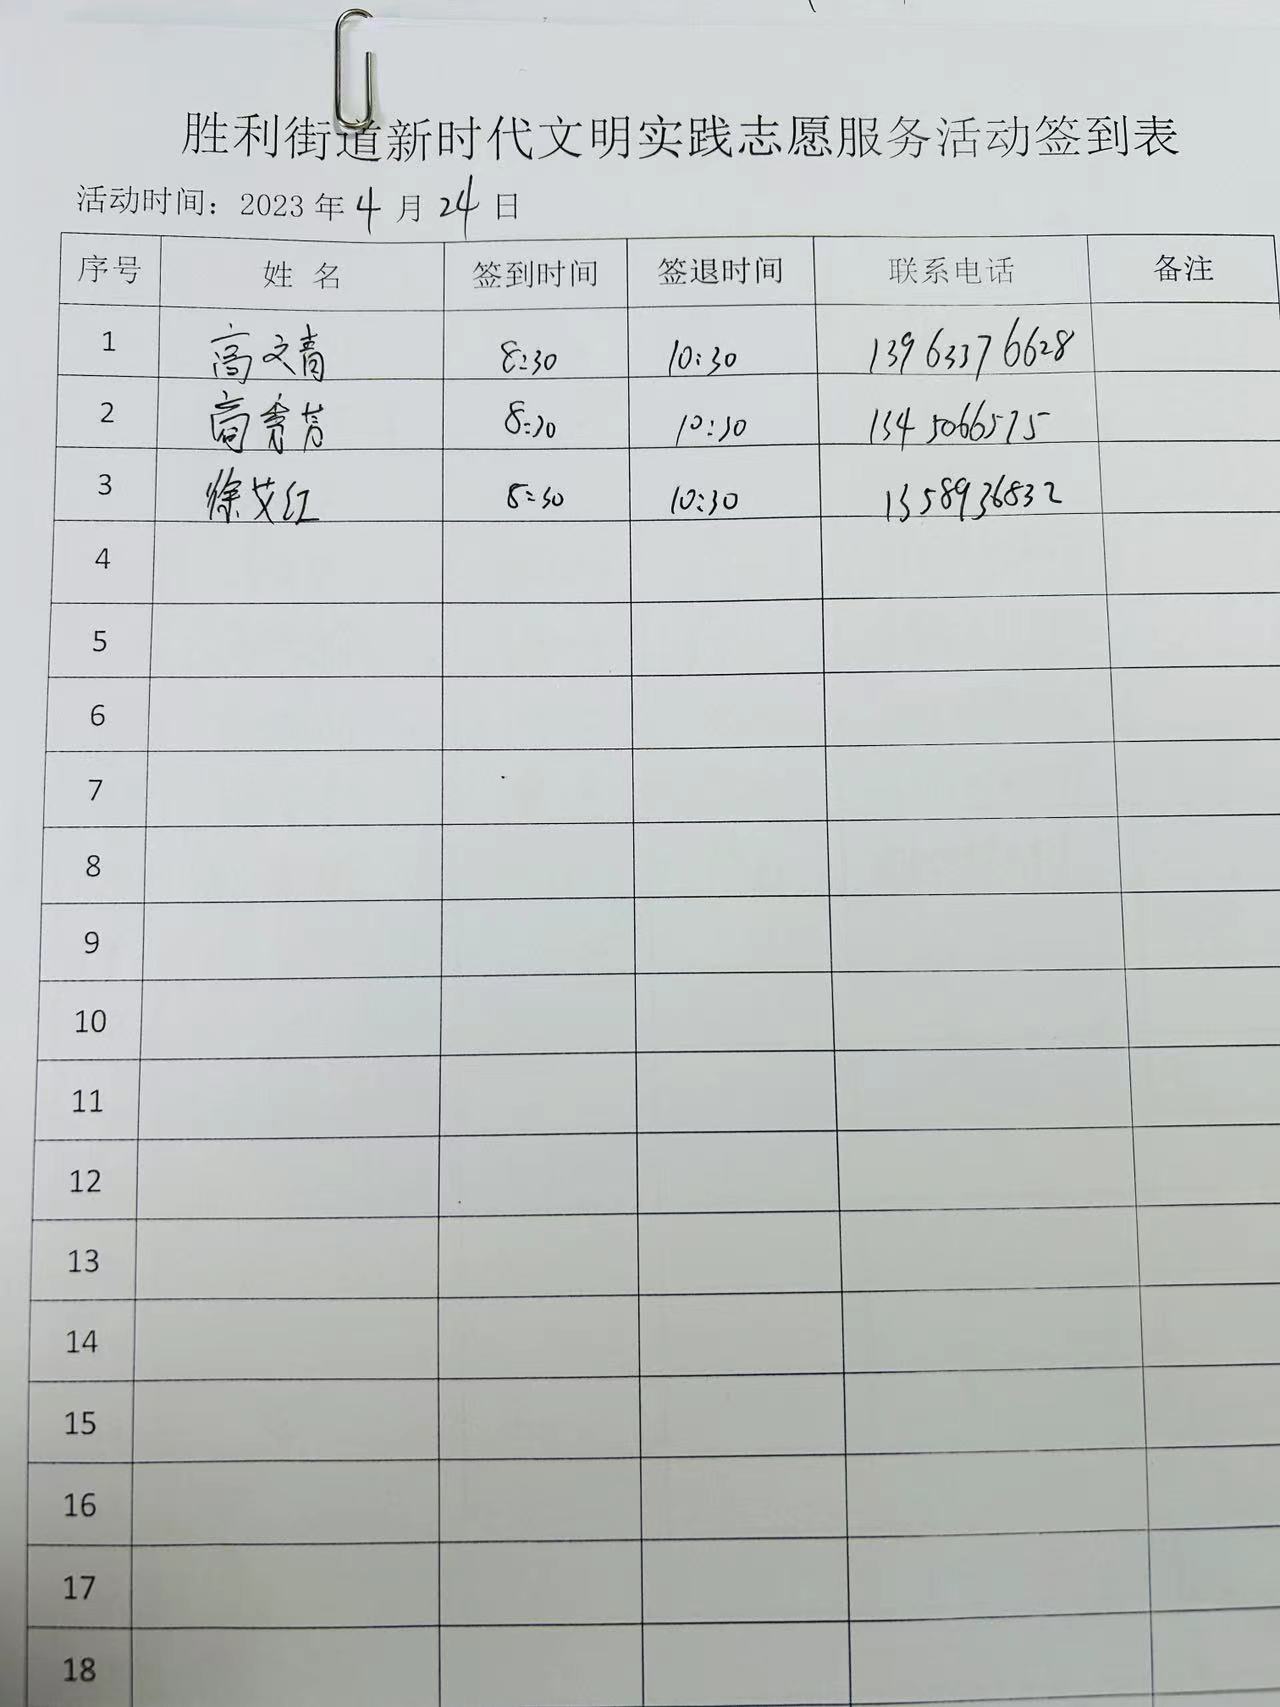 胜利街道新时代文明实践志愿服务活动签到表
活动时间：2023 年 4 月 24 日
序号 姓 名 签到时间 签退时间 联系电话 备注
1 高文青 8:30 10:30 13963376628
2 高秀芳 8:30 10:30 1345066575
3 徐艾红 8:30 10:30 1358936832
4
5
6
7
8
9
10
11
12
13
14
15
16
17
18